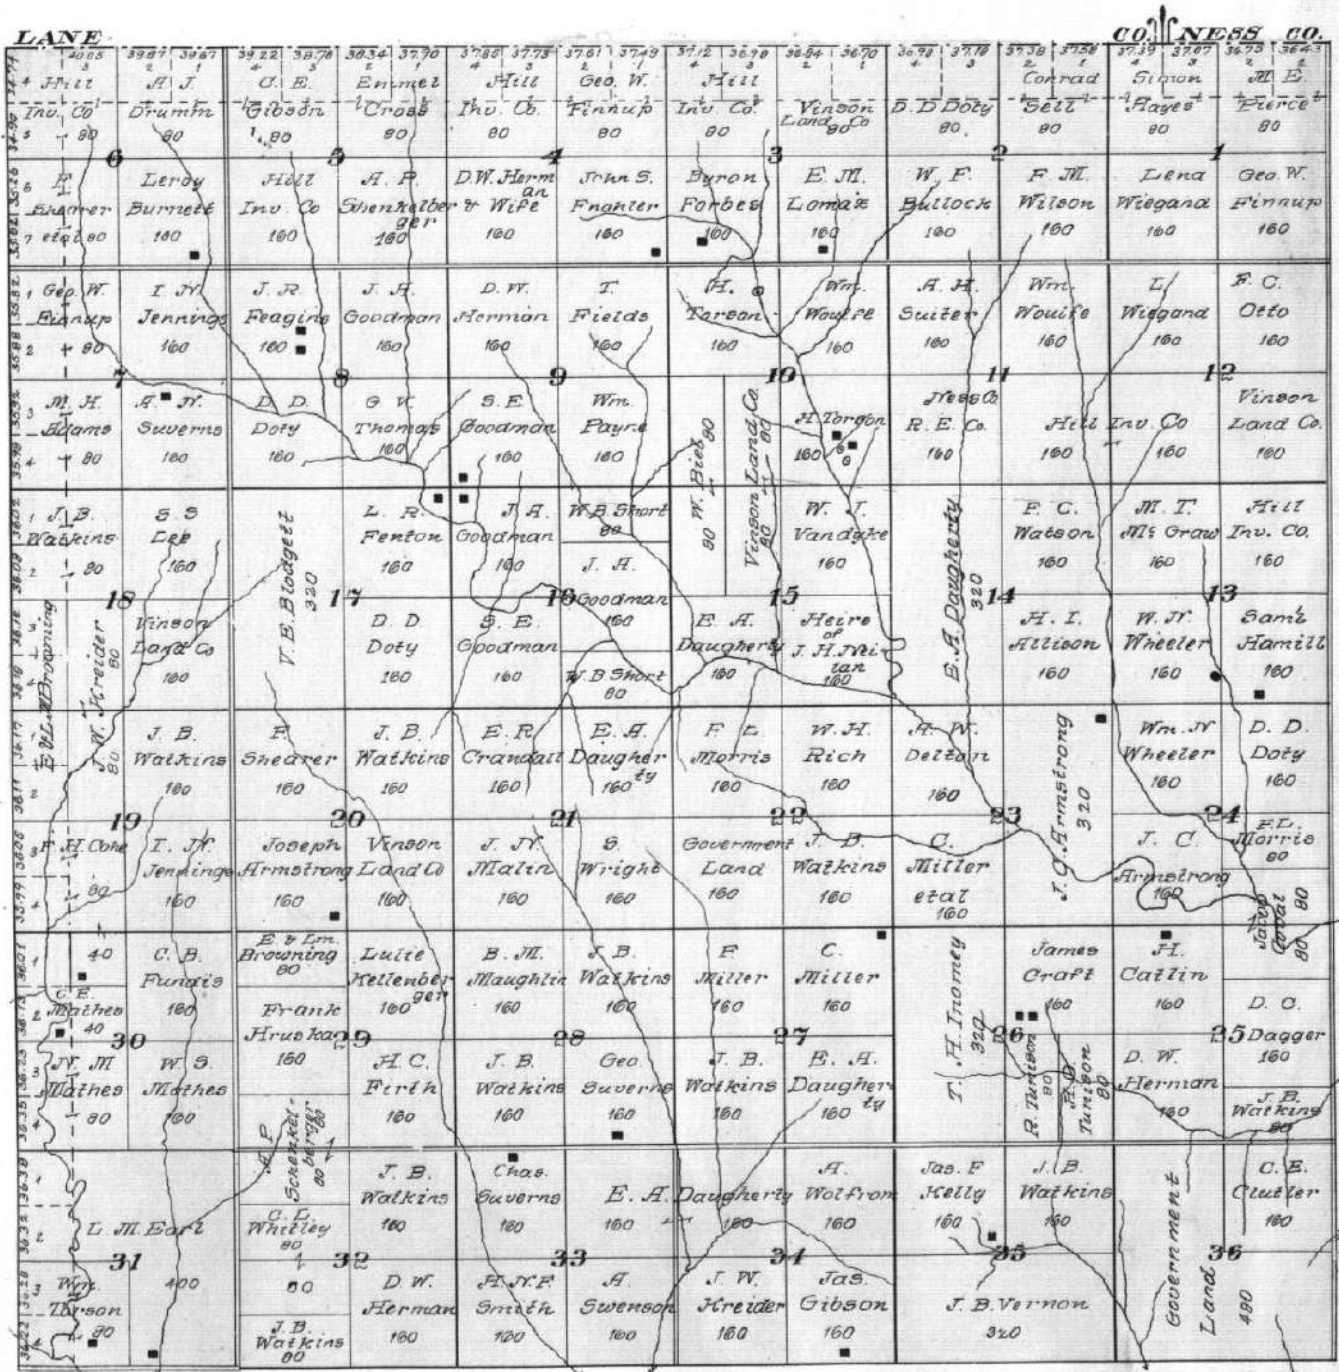 LANE
CO. NESS CO.
40.05 39.87 39.67 39.22 38.78 38.34 37.90 37.85 37.73 37.61 37.49 37.12 36.98 36.84 36.70 36.98 37.18 37.38 37.58 37.39 37.07 36.75 36.43
Hill
Inv. Co
80
A J.
Drumm
80
C. E.
Gibson
80
Emmel
Cross
80
Hill
Inv. Co.
80
Geo. W.
Finnup
80
Hill
Inv. Co.
80
Vinson
Land Co
80
D. D Doty
80
Conrad
Sell
80
Simon
Hayes
80
M. E.
Pierce
80
6
5
4
3
2
1
F.
Shearer
etal 80
Leroy
Burnett
160
Hill
Inv. Co
160
A. P.
Shenkelber
ger
160
D.W. Herm
an
& Wife
160
John S.
160
Byron
Forbes
160
E. M.
Lomax
160
W. F.
Bullock
160
F. M.
Wilson
160
Lena
Wiegand
160
Geo. W.
Finnup
160
Geo. W.
Finnup
80
I. N.
Jennings
160
J. R.
Feagins
160
J. H.
Goodman
160
D. W.
Herman
160
T.
Fields
160
H.
Torson
160
Wm.
Wouife
160
A. H.
Suiter
160
Wm.
Wouife
160
L
Wiegand
160
F. C.
Otto
160
7
8
9
10
11
12
M. H.
Adams
80
A. N.
Suverns
160
D. D.
Doty
160
G V.
Thomas
160
S. E.
Goodman
160
Wm.
Payne
160
W. Bieb
80
80
Vinson Land Co.
80
80
H. Torson
160
Ness Co
R. E. Co.
160
Hill Inv. Co
160
160
Vinson
Land Co.
160
J. B.
Watkins
80
S. S
Lee
160
V. E. Blodgett
320
L. R.
Fenton
160
J. A.
Goodman
160
W. B. Short
80
J. A.
Goodman
160
W. J.
Vandyke
160
E. A. Daugherty
320
F. C.
Watson
160
M. T.
Mc Graw
160
Hill
Inv. Co.
160
18
17
16
15
14
13
E. & L.M. Browning
J. W. Kreider
80
80
Vinson
Land Co
160
D. D
Doty
160
S. E.
Goodman
160
W. B. Short
80
E. A.
Daugherty
160
Heirs
of
J. H. Nei-
man
160
H. I.
Allison
160
W. N.
Wheeler
160
Saml
Hamill
160
J. B.
Watkins
160
F.
Shearer
160
J. B.
Watkins
160
E. R.
Crandall
160
E. A.
Daugher
ty
160
F L
Morris
160
W. H.
Rich
160
A. W.
Delton
160
J. C. Armstrong
320
Wm. N
Wheeler
160
D. D.
Doty
160
19
20
21
22
23
24
F. H. Cohe
80
I. N.
Jennings
160
Joseph
Armstrong
160
Vinson
Land Co
160
J. N.
Malin
160
S.
Wright
160
Government
Land
160
J. B.
Watkins
160
C.
Miller
etal
160
J. C.
Armstrong
160
F. L.
Morris
80
Jacob
80
80
40
C. E.
Mathes
40
C. B.
Fundis
160
E. & Lm.
Browning
80
Frank
Hruska
160
Lulie
Kellenber
ger
160
B. M.
Maughlin
160
J. B.
Watkins
160
F
Miller
160
C.
Miller
160
T. H. Inomey
320
James
Craft
160
H.
Catlin
160
D. C.
Dagger
160
30
29
28
27
26
25
N. M
Mathes
80
W. S.
Mathes
160
H. C.
Firth
160
J. B.
Watkins
160
Geo.
Suverns
160
J. B.
Watkins
160
E. A.
Daugher
ty
160
R. Tunison
80
H. B.
Tunison
80
D. W.
Herman
160
J. B.
Watkins
80
A. P.
Schenkel-
berger
80
80
J. B.
Watkins
160
Chas.
Suverns
160
E. A. Daugherty
160
160
A.
Wolfrom
160
Jas. F
Kelly
160
J. B.
Watkins
160
Government
Land
480
C. E.
Clutter
160
L. M. Earl
400
C. L.
Whitley
80
80
31
32
33
34
35
36
Wm.
Torson
80
J. B.
Watkins
80
D. W.
Herman
160
H. N. F.
Smith
160
A.
Swenson
160
J. W.
Kreider
160
Jas.
Gibson
160
J. B. Vernon
320